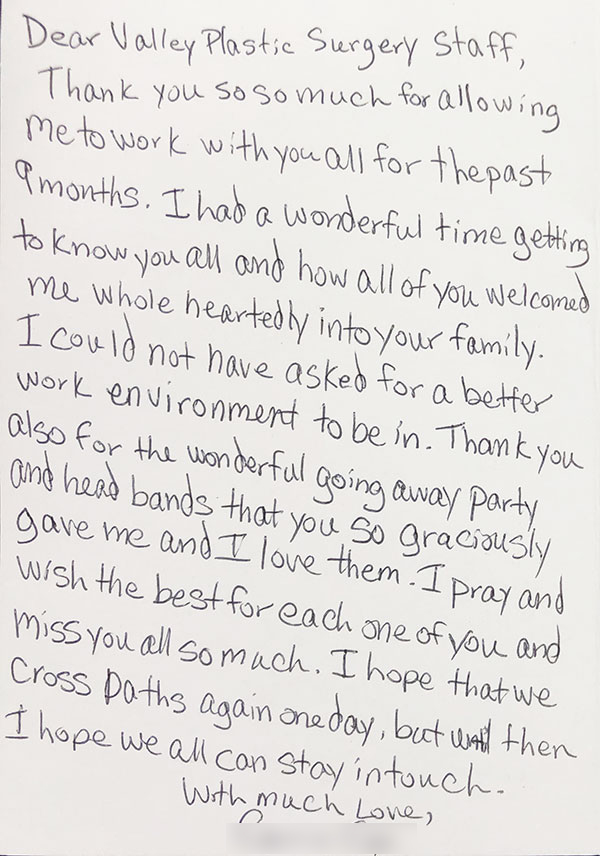 Dear Valley Plastic Surgery Staff,
Thank you so so much for allowing
me to work with you all for the past
9 months. I had a wonderful time getting
to know you all and how all of you welcomed
me whole heartedly into your family.
I could not have asked for a better
work environment to be in. Thank you
also for the wonderful going away party
and head bands that you so graciously
gave me and I love them. I pray and
wish the best for each one of you and
miss you all so much. I hope that we
cross paths again one day, but until then
I hope we all can stay in touch.
With much Love,